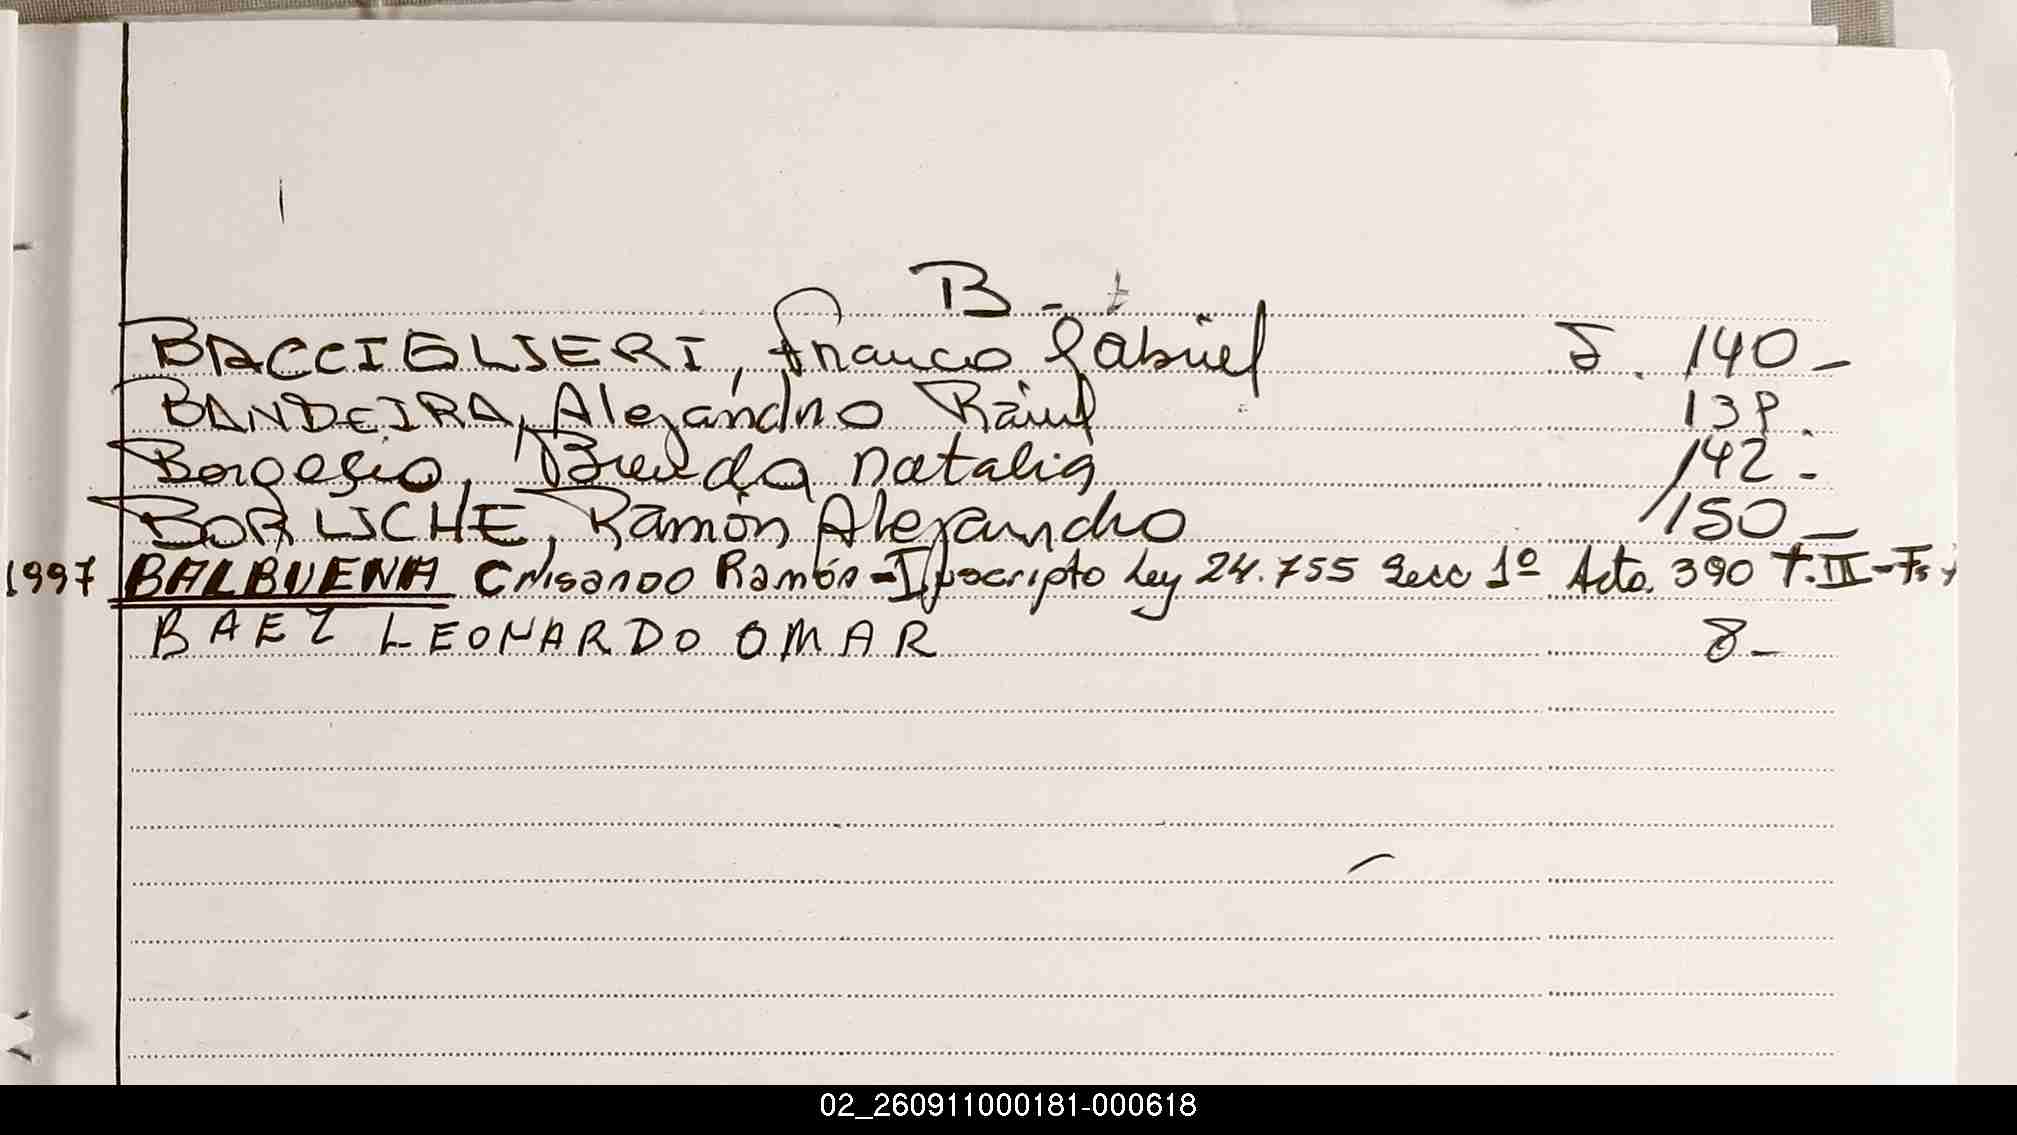 B -
BACCIGLIERI, Franco Gabriel F. 140 -
BANDEIRA, Alejandro Raúl 139.
Borgogno, Brenda Natalia 142 -
BORLICHE, Ramón Alejandro 150 -
1997 BALBUENA Crisando Ramón - Inscripto Ley 24.755 Secc 1º Acta. 390 T.III - Fs
BAEZ LEONARDO OMAR 8 -
02_260911000181-000618